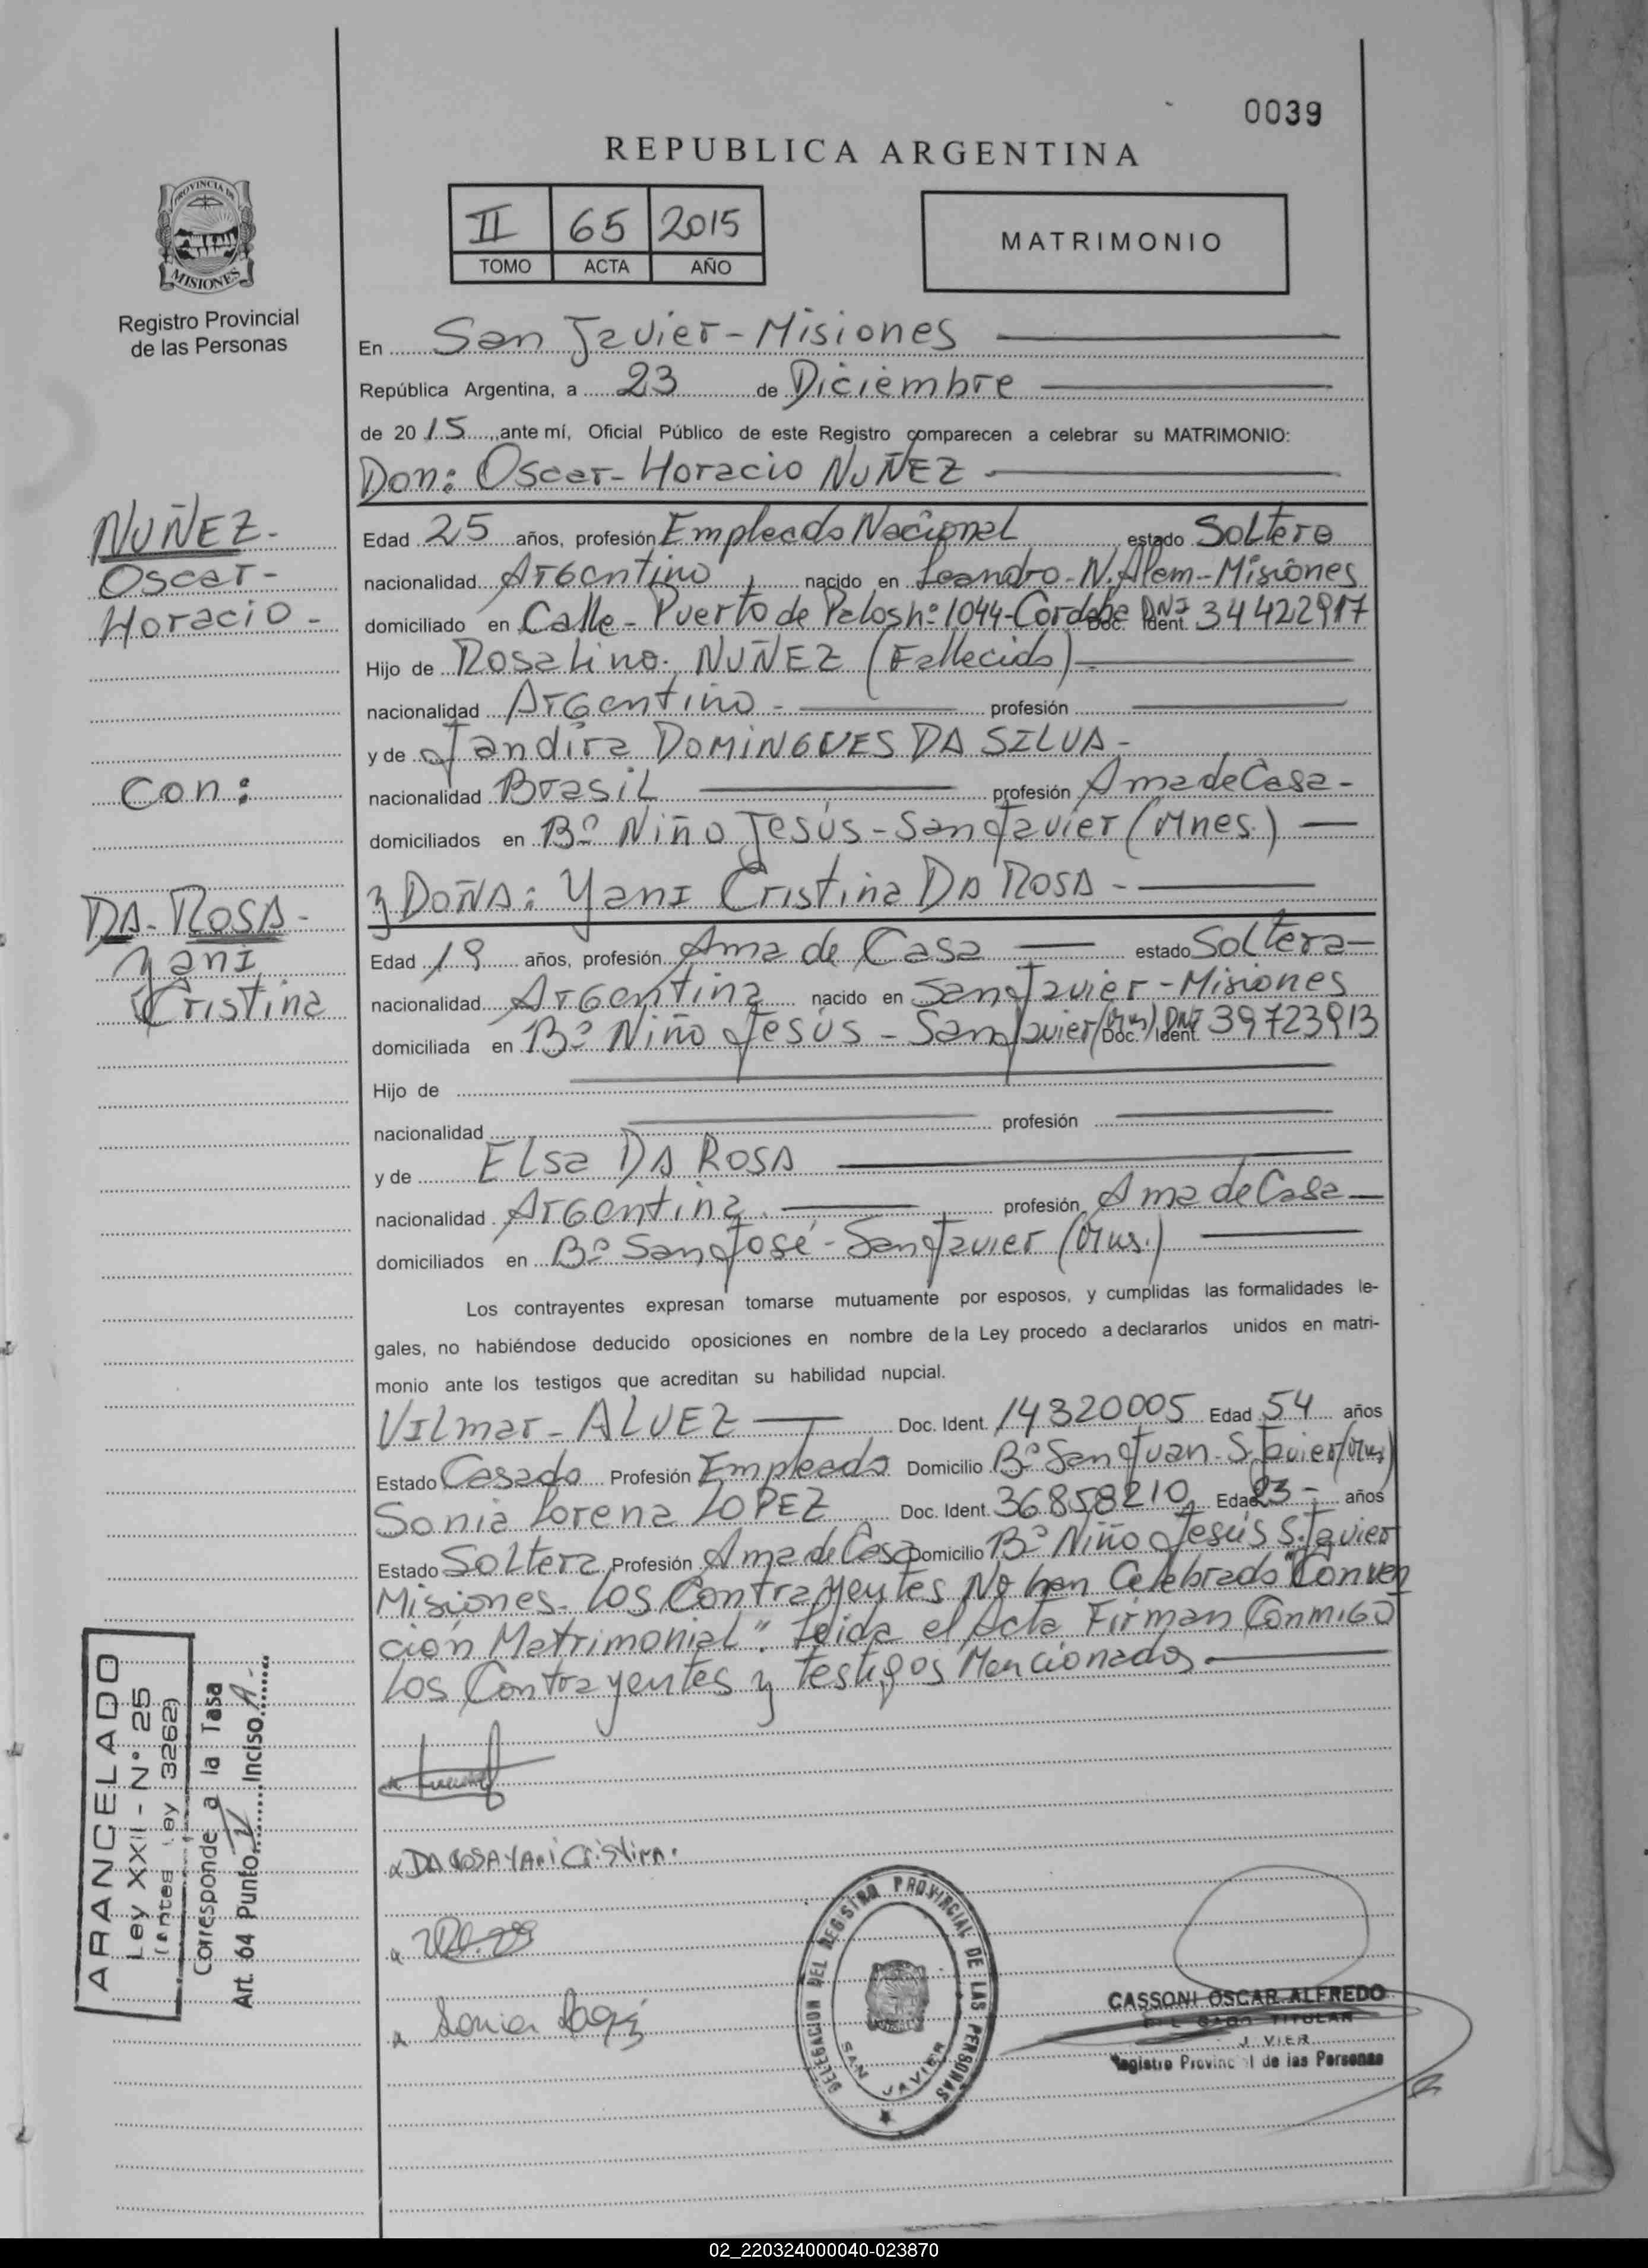 0039
REPUBLICA ARGENTINA
II 65 2015
TOMO ACTA AÑO
MATRIMONIO
PROVINCIA DE
MISIONES
Registro Provincial
de las Personas
En San Javier - Misiones
República Argentina, a 23 de Diciembre
de 2015, ante mí, Oficial Público de este Registro comparecen a celebrar su MATRIMONIO:
Don: Oscar - Horacio NUÑEZ -
NUÑEZ -
Oscar -
Horacio -
Con:
DA - ROSA -
Yani
Cristina
Edad 25 años, profesión Empleado Nacional estado Soltero
nacionalidad Argentino nacido en Leandro - N. Alem - Misiones
domiciliado en Calle - Puerto de Palos nº 1044 - Cordoba Doc. Ident. DNI 34422917
Hijo de Rosalino. NUÑEZ (Fallecido)
nacionalidad Argentino - profesión
y de Jandira DOMINGUES DA SILVA -
nacionalidad Brasil profesión Ama de Casa -
domiciliados en Bº Niño Jesús - San Javier (Mnes.)
y DOÑA: Yani Cristina DA ROSA -
Edad 19 años, profesión Ama de Casa estado Soltera
nacionalidad Argentina nacido en San Javier - Misiones
domiciliada en Bº Niño Jesús - San Javier (Mns) Doc. Ident. DNI 39723913
Hijo de
nacionalidad profesión
y de Elsa DA ROSA
nacionalidad Argentina. profesión Ama de Casa
domiciliados en Bº San José - San Javier (Mns.)
Los contrayentes expresan tomarse mutuamente por esposos, y cumplidas las formalidades le-
gales, no habiéndose deducido oposiciones en nombre de la Ley procedo a declararlos unidos en matri-
monio ante los testigos que acreditan su habilidad nupcial.
Vilmar - ALVEZ Doc. Ident. 14320005 Edad 54 años
Estado Casado Profesión Empleado Domicilio Bº San Juan - S. Javier (Mns)
Sonia Lorena LOPEZ Doc. Ident. 36858210 Edad 23 - años
Estado Soltera Profesión Ama de Casa Domicilio Bº Niño Jesús S. Javier
Misiones. Los Contrayentes No han Celebrado "Conven
ción Matrimonial". Leida el Acta Firman Conmigo
Los Contrayentes y Testigos Mencionados.
ARANCELADO
Ley XXII - Nº 25
(Antes Ley 3262)
Corresponde a la Tasa
Art. 64 Punto IV Inciso A
DA ROSA YANi CriStiNA.
Sonia Lopez
DELEGACION DEL REGISTRO PROVINCIAL DE LAS PERSONAS
SAN JAVIER
CASSONI OSCAR ALFREDO
TITULAR
Registro Provincial de las Personas
02_220324000040-023870